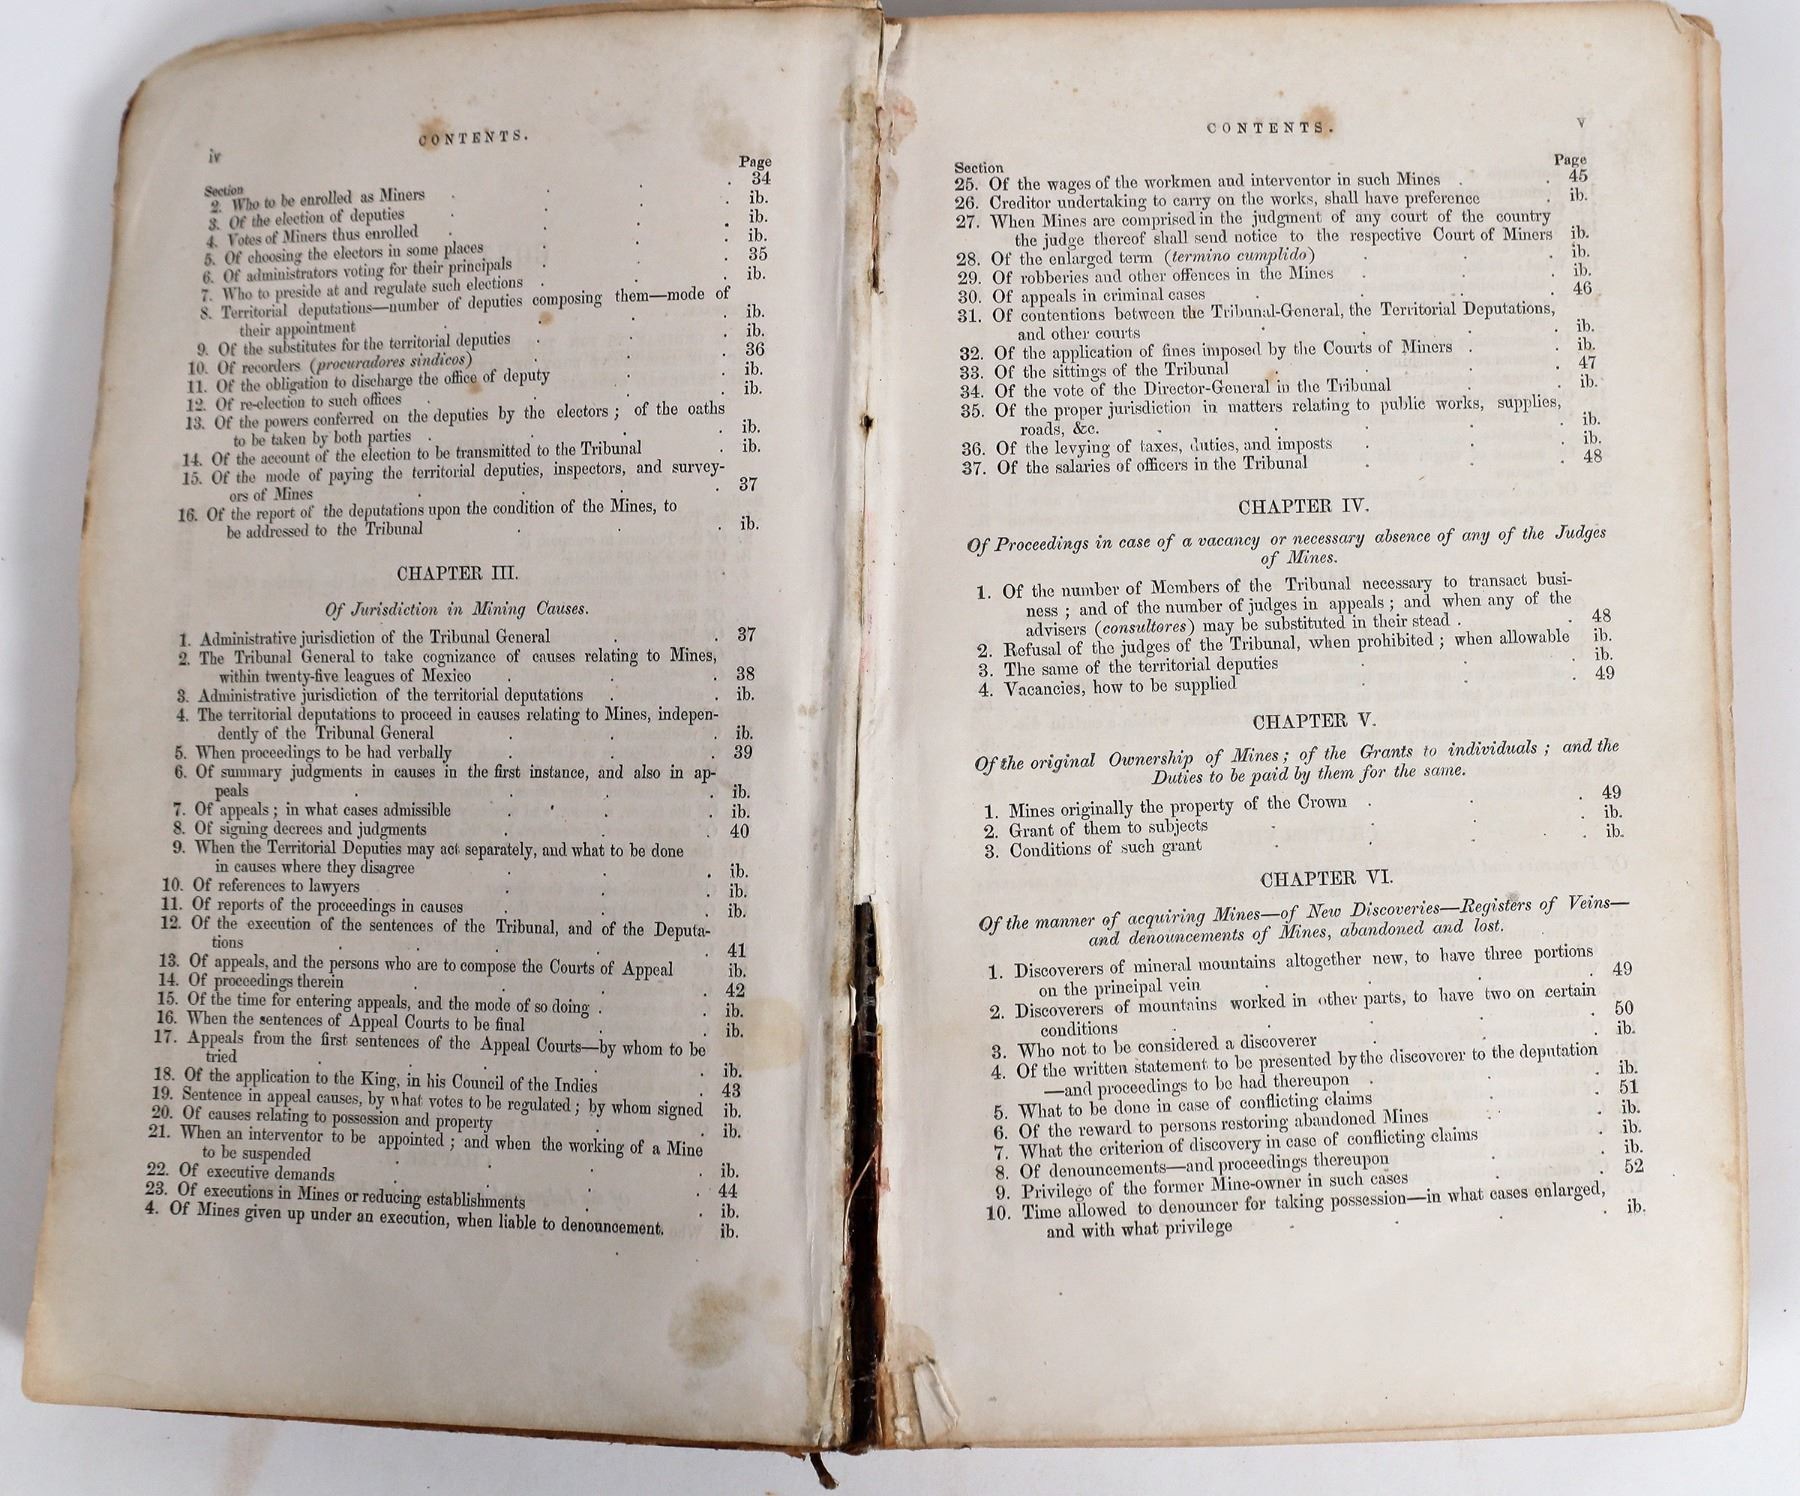 iv
CONTENTS.
Section Page
2. Who to be enrolled as Miners . . . . 34
3. Of the election of deputies . . . . ib.
4. Votes of Miners thus enrolled . . . . ib.
5. Of choosing the electors in some places . . . ib.
6. Of administrators voting for their principals . . . 35
7. Who to preside at and regulate such elections . . . ib.
8. Territorial deputations—number of deputies composing them—mode of
their appointment . . . . ib.
9. Of the substitutes for the territorial deputies . . . ib.
10. Of recorders (procuradores sindicos) . . . 36
11. Of the obligation to discharge the office of deputy . . ib.
12. Of re-election to such offices . . . . ib.
13. Of the powers conferred on the deputies by the electors; of the oaths
to be taken by both parties . . . . ib.
14. Of the account of the election to be transmitted to the Tribunal . ib.
15. Of the mode of paying the territorial deputies, inspectors, and survey-
ors of Mines . . . . 37
16. Of the report of the deputations upon the condition of the Mines, to
be addressed to the Tribunal . . . ib.
CHAPTER III.
Of Jurisdiction in Mining Causes.
1. Administrative jurisdiction of the Tribunal General . . 37
2. The Tribunal General to take cognizance of causes relating to Mines,
within twenty-five leagues of Mexico . . . 38
3. Administrative jurisdiction of the territorial deputations . . ib.
4. The territorial deputations to proceed in causes relating to Mines, indepen-
dently of the Tribunal General . . . ib.
5. When proceedings to be had verbally . . . 39
6. Of summary judgments in causes in the first instance, and also in ap-
peals . . . . ib.
7. Of appeals; in what cases admissible . . . ib.
8. Of signing decrees and judgments . . . 40
9. When the Territorial Deputies may act separately, and what to be done
in causes where they disagree . . . ib.
10. Of references to lawyers . . . ib.
11. Of reports of the proceedings in causes . . . ib.
12. Of the execution of the sentences of the Tribunal, and of the Deputa-
tions . . . . 41
13. Of appeals, and the persons who are to compose the Courts of Appeal ib.
14. Of proceedings therein . . . . 42
15. Of the time for entering appeals, and the mode of so doing . . ib.
16. When the sentences of Appeal Courts to be final . . ib.
17. Appeals from the first sentences of the Appeal Courts—by whom to be
tried . . . . ib.
18. Of the application to the King, in his Council of the Indies . 43
19. Sentence in appeal causes, by what votes to be regulated; by whom signed ib.
20. Of causes relating to possession and property . . ib.
21. When an interventor to be appointed; and when the working of a Mine
to be suspended . . . . ib.
22. Of executive demands . . . 44
23. Of executions in Mines or reducing establishments . . ib.
4. Of Mines given up under an execution, when liable to denouncement. ib.
CONTENTS.
v
Section Page
25. Of the wages of the workmen and interventor in such Mines . . 45
26. Creditor undertaking to carry on the works, shall have preference . ib.
27. When Mines are comprised in the judgment of any court of the country
the judge thereof shall send notice to the respective Court of Miners ib.
28. Of the enlarged term (termino cumplido) . . . ib.
29. Of robberies and other offences in the Mines . . . ib.
30. Of appeals in criminal cases . . . . 46
31. Of contentions between the Tribunal-General, the Territorial Deputations,
and other courts . . . . ib.
32. Of the application of fines imposed by the Courts of Miners . . ib.
33. Of the sittings of the Tribunal . . . . 47
34. Of the vote of the Director-General in the Tribunal . . ib.
35. Of the proper jurisdiction in matters relating to public works, supplies,
roads, &c. . . . . ib.
36. Of the levying of taxes, duties, and imposts . . . ib.
37. Of the salaries of officers in the Tribunal . . . 48
CHAPTER IV.
Of Proceedings in case of a vacancy or necessary absence of any of the Judges
of Mines.
1. Of the number of Members of the Tribunal necessary to transact busi-
ness; and of the number of judges in appeals; and when any of the
advisers (consultores) may be substituted in their stead . . 48
2. Refusal of the judges of the Tribunal, when prohibited; when allowable ib.
3. The same of the territorial deputies . . . ib.
4. Vacancies, how to be supplied . . . 49
CHAPTER V.
Of the original Ownership of Mines; of the Grants to individuals; and the
Duties to be paid by them for the same.
1. Mines originally the property of the Crown . . . 49
2. Grant of them to subjects . . . . ib.
3. Conditions of such grant . . . . ib.
CHAPTER VI.
Of the manner of acquiring Mines—of New Discoveries—Registers of Veins—
and denouncements of Mines, abandoned and lost.
1. Discoverers of mineral mountains altogether new, to have three portions
on the principal vein . . . . 49
2. Discoverers of mountains worked in other parts, to have two on certain
conditions . . . . 50
3. Who not to be considered a discoverer . . . ib.
4. Of the written statement to be presented by the discoverer to the deputation
—and proceedings to be had thereupon . . . ib.
5. What to be done in case of conflicting claims . . . 51
6. Of the reward to persons restoring abandoned Mines . . ib.
7. What the criterion of discovery in case of conflicting claims . ib.
8. Of denouncements—and proceedings thereupon . . ib.
9. Privilege of the former Mine-owner in such cases . . 52
10. Time allowed to denouncer for taking possession—in what cases enlarged,
and with what privilege . . . . ib.